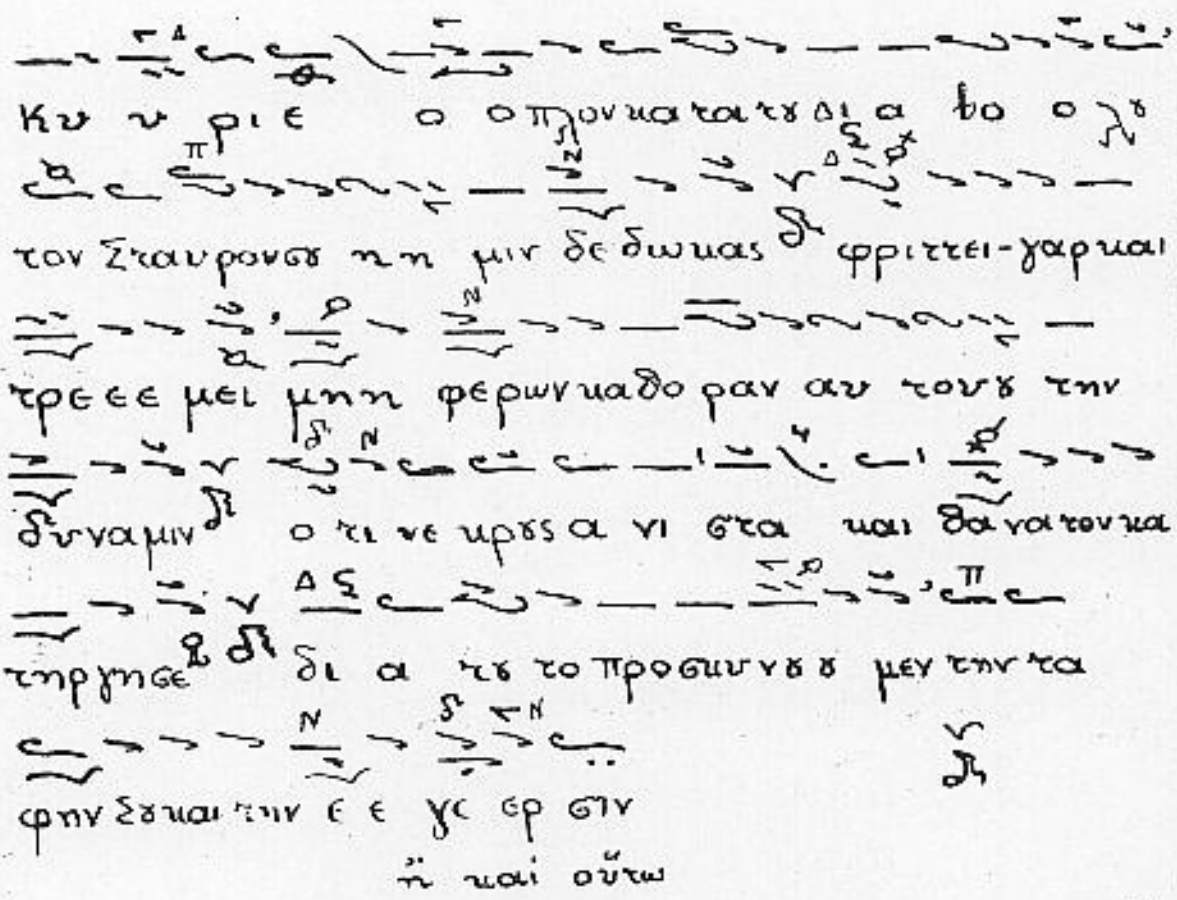 Κυ υ ρι ε ο ο πλον κα τα του δι α βο ο λου
τον Σταυρον σου η η μιν δε δω κας φριττει - γαρ και
τρε ε ε μει μη η φερων κα θο ραν αυ του ου την
δυ να μιν ο τι νε κρους α νι στα και θα να τον κα
τηρ γη σε δι α του το προσκυνου ου μεν την τα
φην Σου και την ε ε γε ερ σιν
ἢ καὶ οὕτω